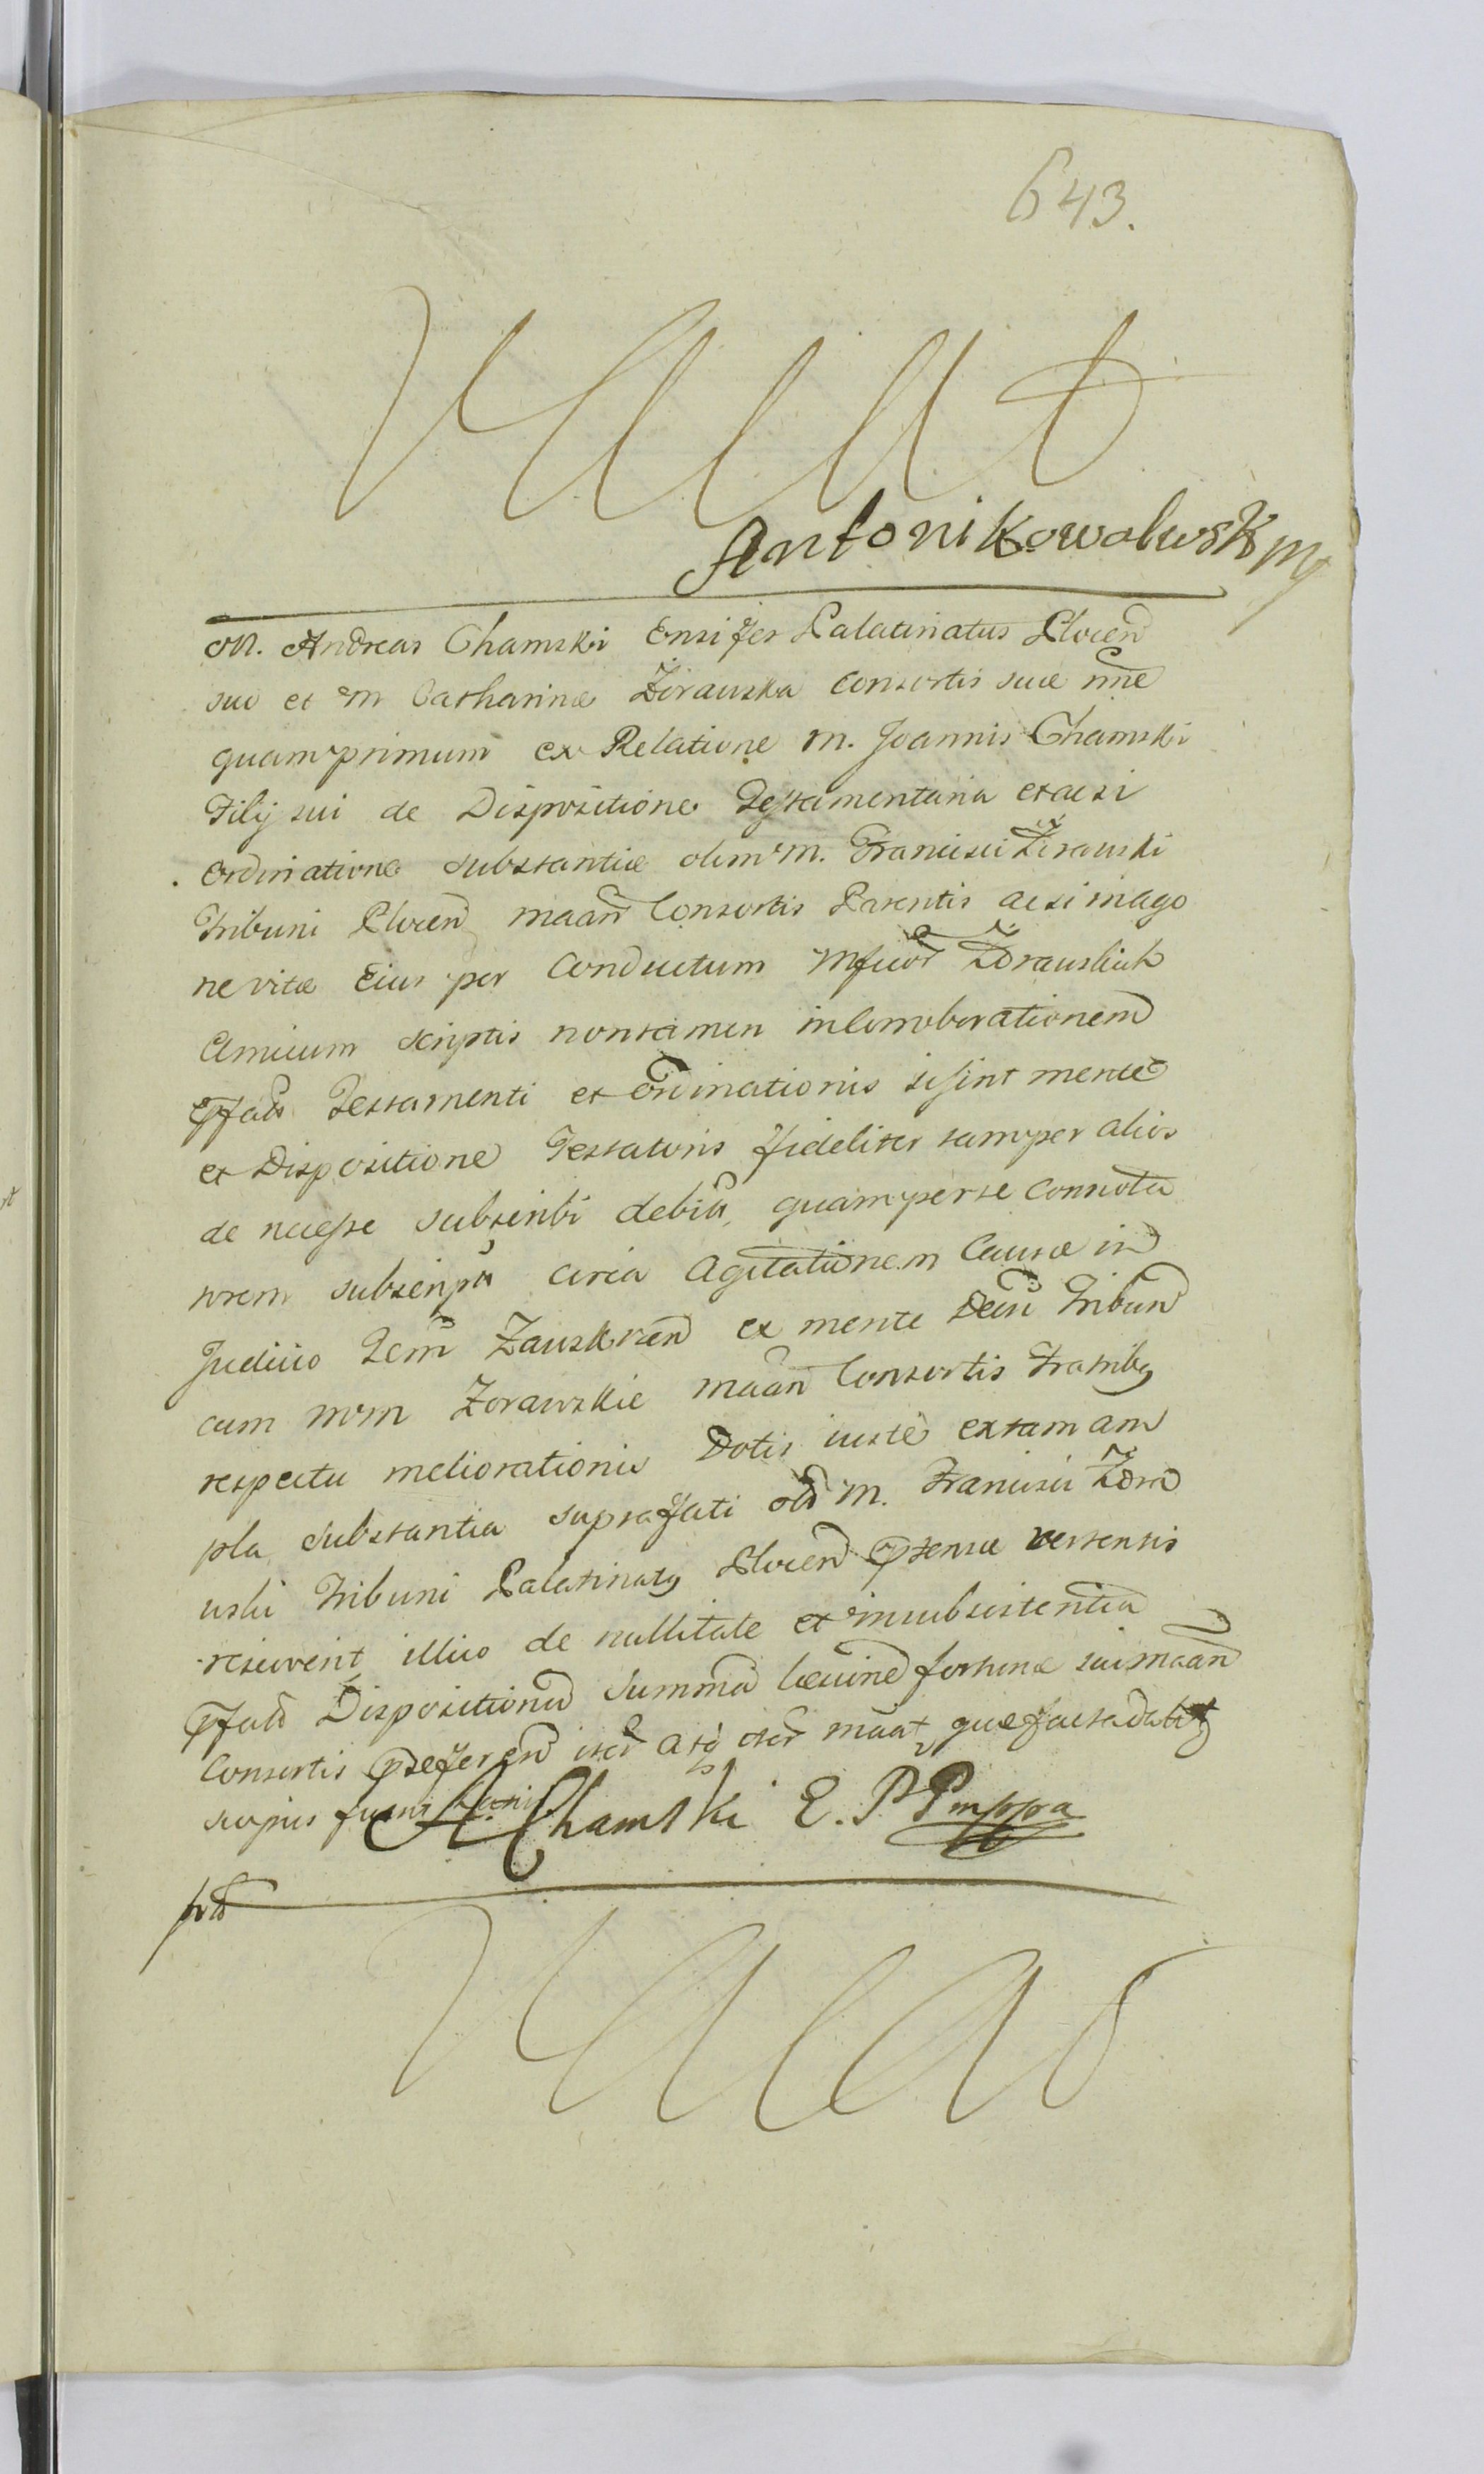 643.
Antoni Kowalewski mp
M. Andreas Chamski Ensifer Palatinatus Plocen
suo et M Catharinæ Zorawska Consortis suæ nne
quamprimum ex Relatione M. Joannis Chamski
Filij sui de Dispositione Testamentaria et acsi
Ordinatione substantiæ olim M. Francisci Zorawski
Tribuni Plocen maan Consortis Parentis acsi in ago
ne vitæ Eius per Conductum Mficor Zorawskich
Amicum scriptis non tamen in Corroborationem
pfati Testamenti et Ordinationis si sint mente
et Dispositione Testatoris fideliter tam per alios
de necesse subscribi debita, quam per se
subscripta circa Agitationem Causæ in
Judicio Zawskrzen ex mente Tribun
cum MM Zorawskie maan Consortis Fratribus
respectu meliorationis Dotis iuste ex tam am
pla substantia suprafati M. Francisci Zora
wski Tribuni Palatinatus Plocen vertentis
resciverit illico de nullitate et insubsistentia
pfatæ Dispositionis summa fortunæ sui maan
Consortis iter atq iter maat
fusius
A Chamski E. P P mppa